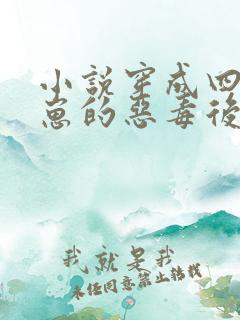 小說穿成四
崽的惡毒後
我就是我
未经同意禁止转载